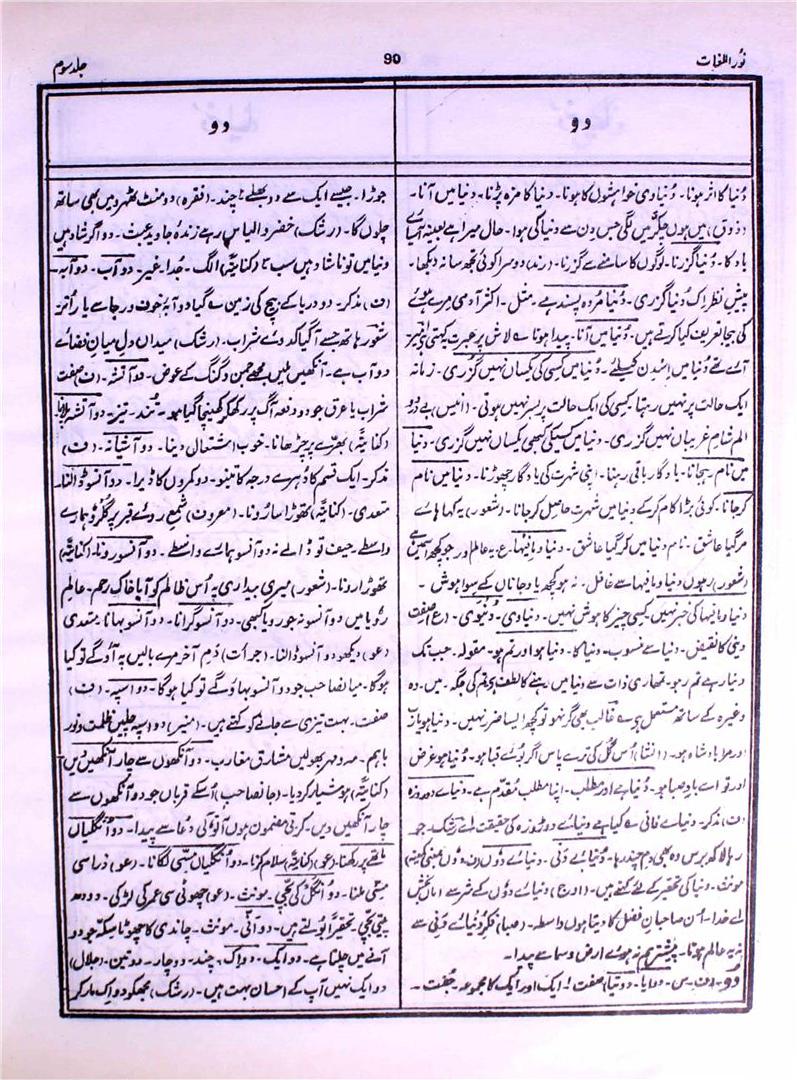 نُور اللغات
90
جلد سوم
دو
دو
دُنیا کا اثر ہونا۔ دُنیاوی خواہشوں کا ہونا۔ دنیا کا مزہ پڑنا۔ دنیا میں آنا۔
(ذوق) میں ہوں چکّر میں لگی جس دن سے دنیا کی ہوا۔ حال میرا ہے بعینہ آسیائے
باد کا۔ دُنیا گزرنا۔ لوگوں کا سامنے سے گزرنا۔ (رند) دوسرا کوئی تجھ سا نہ دیکھا۔
پیشِ نظر اک دُنیا گزری۔ دُنیا مردہ پسند ہے۔ مثل۔ اکثر آدمی مرے ہوئے
کی بیجا تعریف کیا کرتے ہیں۔ دُنیا میں آنا۔ پیدا ہونا لاش پر عبرت کہتی
آئے تھے دُنیا میں اسدن کیلئے۔ دُنیا میں کسی کی یکساں نہیں گزری۔ زمانہ
ایک حالت پر نہیں رہتا کسی کی ایک حالت پر بسر نہیں ہوتی۔ (انیس)
الم شامِ غریباں نہیں گزری۔ دنیا میں کسیکی کبھی یکساں نہیں گزری۔ دنیا
میں نام رہجانا۔ یادگار باقی رہنا۔ اپنی شہرت کی یادگار چھوڑنا۔ دنیا میں نام
کرجانا۔ کوئی بڑا کام کرکے دنیا میں شہرت حاصل کرجانا۔ (شعور) یہ کہا ہائے
مر گیا عاشق۔ نام دنیا میں کر گیا عاشق۔ دنیا و مافیہا۔ ع۔ یہ عالم اور جو کچھ اسمیں ہے
(شعور) رہوں دنیا و مافیہا سے غافل۔ نہ ہو کچھ یادِ جاناں کے سوا ہوش۔
دنیا و مافیہا کی خبر نہیں کسی چیز کا ہوش نہیں۔ دنیاوی۔ دُنیوی۔ (ع) صفت
دینی کا نقیض۔ دنیا سے منسوب۔ دنیا کا۔ دنیا ہو اور تم ہو۔ مقولہ۔ جب تک
دنیا رہے تم رہو۔ تمھاری ذات سے دنیا میں رہنے کا لطف ہے۔ تم کی جگہ۔ میں۔ وہ
وغیرہ کے ساتھ مستعمل ہے۔ غالب بھی گر نہو تو کچھ ایسا ضرر نہیں۔ دنیا ہو یا رب
اور مرا بادشاہ ہو۔ (انشا) اُس گُل کی ترے پاس اگر بوئے قبا ہو۔ دُنیا ہو عرض
اور تو اے بادِ صبا ہو۔ دُنیا ہے اور مطلب۔ اپنا مطلب مُقدّم ہے۔ دنیائے دو روزہ
(ف) مذکر۔ دنیائے فانی کیا ہے دنیائے دو روزہ کی حقیقت اے رشک۔ جو
رہا لاکھ برس وہ بھی دم چند رہا۔ دُنیائے دَنی۔ دنیائے دُوں
مونث۔ دنیا کی تحقیر کے لئے کہتے ہیں۔ (اوج) دنیائے دُوں کے شر سے اماں بخش
اے خدا۔ اُن صاحبانِ فضل کا دیتا ہوں واسطہ۔ (صبا) فکرِ دُنیائے دَنی سے
نہ یہ عالم ہوتا۔ پیشتر ہم نہ ہوئے ارض و سما سے پیدا۔
دُو۔ (ف۔ س۔ دوایا۔ دوتیا) صفت۔ ایک اور ایک کا مجموعہ۔ جُفت۔
جوڑا۔ جیسے ایک سے دو بھلے چند۔ (فقرہ) دو منٹ ٹھہرو میں بھی ساتھ
چلوں گا۔ (رشک) خضر و الیاس رہے زندۂ جاوید عبث۔ دو اگر شاد ہیں
دنیا میں تو ناشاد ہیں سب (کنایۃً) الگ۔ جُدا۔ غیر۔ دو آب۔ دو آبہ۔
(ف) مذکر۔ دو دریا کے بیچ کی زمین دو آبہ خوف ورجا سے یار اُترا
شعور ہاتھ جسے آگیا کدوئے شراب۔ (رشک) میداں دلِ میانِ فضائے
دو آب ہے۔ آنکھیں ملیں مجھے جمن و گنگ کے عوض۔ دو آتشہ۔ (ف) صفت
شراب یا عرق جو دو دفعہ آگ پر رکھ کر کھینچا گیا ہو۔ تُند۔ تیز۔ دو آتشہ پلانا
(کنایۃً) بھرّے پر چڑھانا۔ خوب اشتعال دینا۔ دو آشیانہ۔ (ف)
مذکر۔ ایک قسم کا دُہرے درجہ کا تنبو۔ دو کمروں کا ڈیرا۔ دو آنسو ڈالنا۔
متعدی۔ (کنایۃً) تھوڑا سا رونا۔ (معروف) شمع روئے قبر پر ہمارے
واسطے۔ حیف تو ڈالے نہ دو آنسو ہمارے واسطے۔ دو آنسو رونا۔ (کنایۃً)
تھوڑا رونا۔ (شعور) میری بیداری پہ اُس ظالم کو آیا خاک رحم۔ عالمِ
رؤیا میں دو آنسو نہ جو رویا کبھی۔ دو آنسو گرانا۔ دو آنسو بہانا۔ متعدی
(عو) دیکھو دو آنسو ڈالنا۔ (جرأت) دمِ آخر مرے بالیں پہ آؤ گے تو کیا
ہوگا۔ میاں صاحب جو دو آنسو بہاؤ گے تو کیا ہوگا۔ دو اسپہ۔ (ف)
صفت۔ بہت تیزی سے جانے کو کہتے ہیں۔ (منیر) دو اسپہ چلیں ظلمت و نور
باہم۔ مہ و مہر بھولیں مشارق مغارب۔ دو آنکھوں سے چار آنکھیں دیں
(کنایۃً) ہوشیار کر دیا۔ (جانصاحب) اُسکے قرباں جو دو آنکھوں سے
چار آنکھیں دیں۔ دعا سے پیدا۔ دو اُنگلیاں
ماتھے پر رکھنا۔ (عو) (کنایۃً) سلام کرنا۔ دو اُنگلیاں مِسّی لگانا۔ (عو) ذرا سی
مِسّی ملنا۔ دو اُنگل کی بچّی۔ مونث۔ (عو) چھوٹی سی عمر کی لڑکی۔ دودھ
پیتی بچّی۔ تحقیراً بولتے ہیں۔ دو اَنّی۔ مونث۔ چاندی کا چھوٹا سکّہ جو دو
آنے میں چلتا ہے۔ دو ایک۔ دو اِک۔ چند۔ دو چار۔ دو تین۔ (جلال)
دو ایک نہیں آپ کے احسان بہت ہیں۔ (رشک) مجھکو دو اِک مار کر